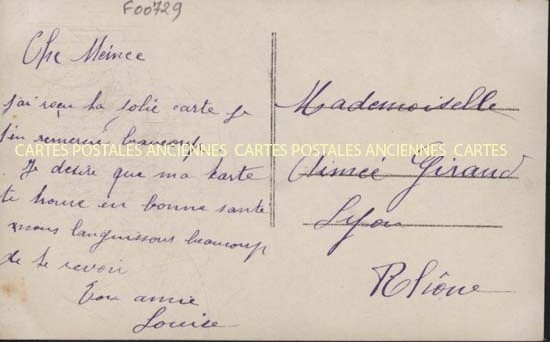 F00729
Che Meinee
j'ai reçu ta jolie carte je
t'en remercie beaucoup
CARTES POSTALES ANCIENNES CARTES POSTALES ANCIENNES CARTES
. Je desire que ma carte
te trouve en bonne santé
nous languissons beaucoup
de te revoir
Ton amie
Louise
Mademoiselle
Aimée Giraud
Lyon
Rhône